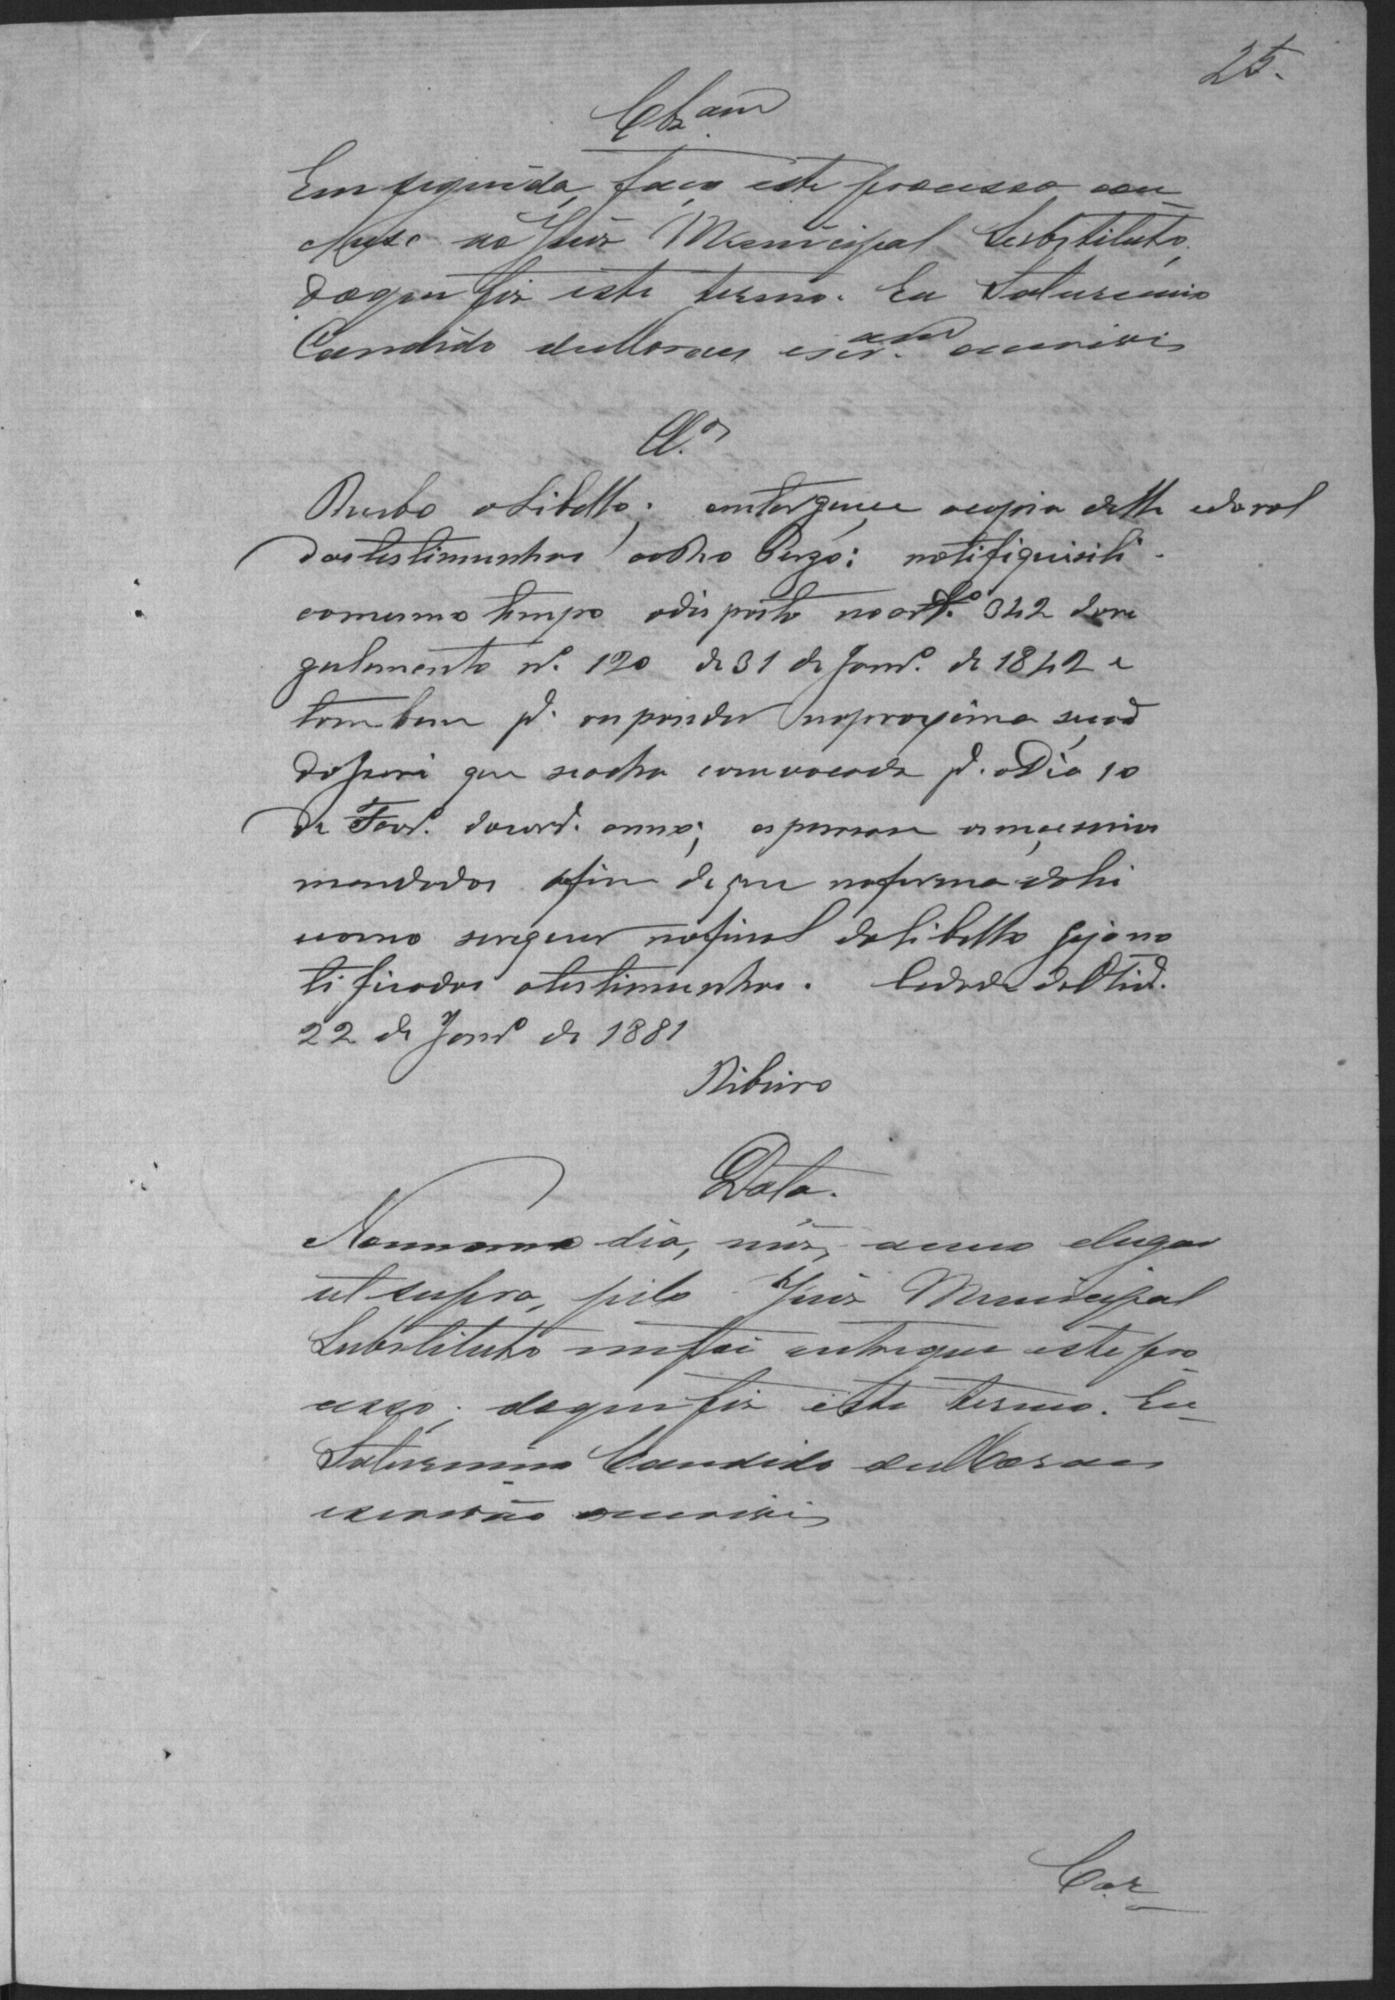 25.
Cl.am
Em seguida, faço este processo con
cluso ao Juiz Municipal Substituto,
do que fiz este termo. Eu Saturnino
Candido de Moraes escr.am o escrivi
Cl.os
Recebo o libello; entregue a copia delle e do rol
das testimunhas ao Reo: notifique-se-lhe
ao mesmo tempo o disposto no art.o 342 do re
gulamento n.o 120 de 31 de Janr.o de 1842 e
tambem p.a responder na proxima sessão
do Jury que se acha convocada p.a o Dia 10
de Fevr.o do corr.e anno;
mandados afim de que na forma da lei
como requer no final do libello seja no
tificadas as testimunhas. Cidade do
22 de Janr.o de 1881
Ribeiro
Data.
No mesmo dia, mêz, anno e lugar
ut supra, pelo Juiz Municipal
Substituto me foi entregue este pro
cesso; do que fiz este termo. Eu
Saturnino Candido de Moraes
escrivão o escrivi